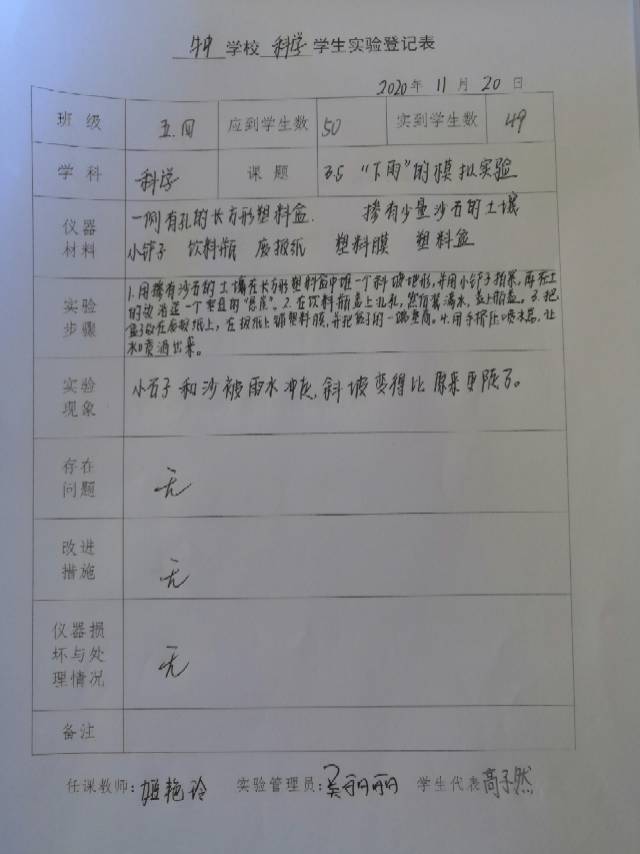 学校 科学 学生实验登记表
2020年 11月 20日
班级 五.四 应到学生数 50 实到学生数 49
学科 科学 课题 3.5 “下雨”的模拟实验
仪器材料 一侧有孔的长方形塑料盒. 掺有少量沙石的土壤
小铲子 饮料瓶 废报纸 塑料膜 塑料盒
实验步骤 1.用掺有少量沙石的土壤在长方形塑料盒中堆一个斜坡地形,并用小铲子拍实,再在土
的 一个垂直的“悬崖”。2.在饮料瓶盖上扎孔,然后装满水,盖上瓶盖。3.把
盒子放在废报纸上,在报纸上铺塑料膜,并把盒子的一端垫高。4.用手挤压喷水器,让
水喷洒出来。
实验现象 小石子和沙被雨水冲灰,斜坡变得比原来更陡了。
存在问题 无
改进措施 无
仪器损坏与处理情况 无
备注
任课教师:姬艳玲 实验管理员:吴丽丽 学生代表 高子然